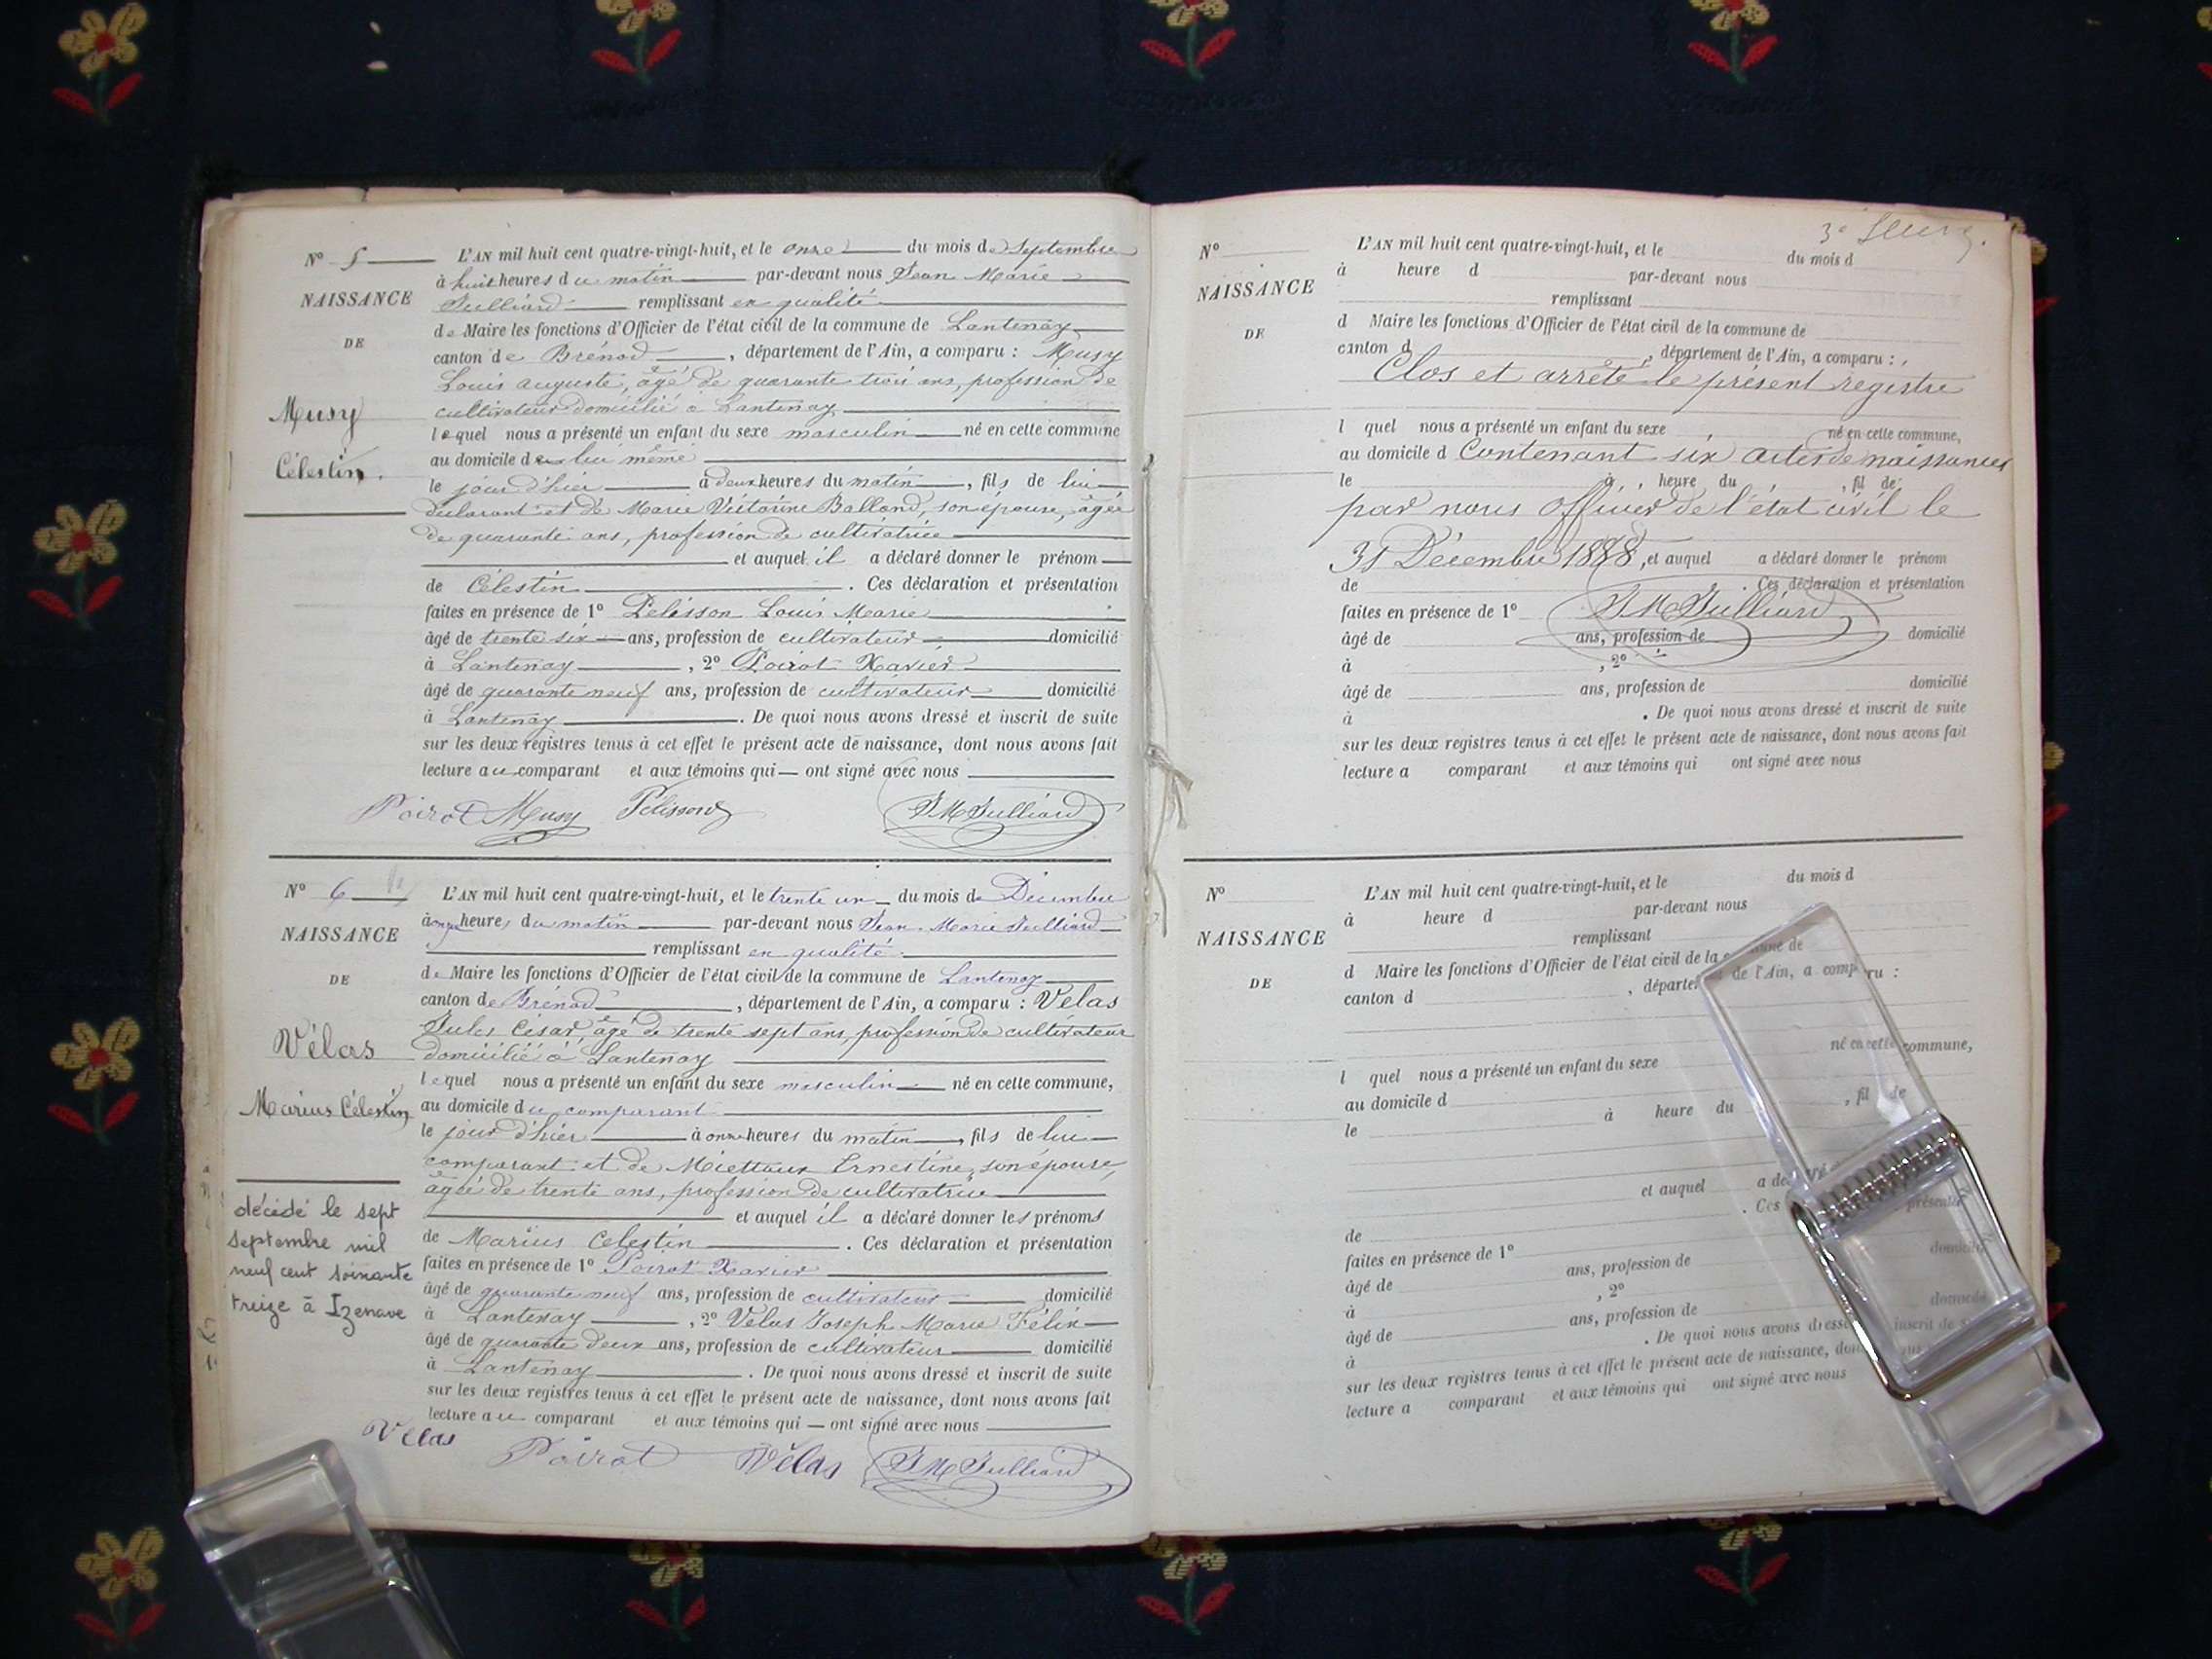 N° 5 L'AN mil huit cent quatre-vingt-huit, et le onze du mois de Septembre
à huit heures du matin par-devant nous Jean Marie
NAISSANCE
Julliard remplissant en qualité
de Maire les fonctions d'Officier de l'état civil de la commune de Lantenay
DE
canton de Brénod, département de l'Ain, a comparu : Musy
Louis Auguste, âgé de quarante trois ans, profession de
Musy
cultivateur domicilié à Lantenay
lequel nous a présenté un enfant du sexe masculin né en cette commune
au domicile de lui même
Célestin.
le jour d'hier à deux heures du matin, fils de lui
déclarant et de Marie Victorine Balland, son épouse, âgée
de quarante ans, profession de cultivatrice
et auquel il a déclaré donner le prénom
de Célestin. Ces déclaration et présentation
faites en présence de 1° Pélisson Louis Marie
âgé de trente six ans, profession de cultivateur domicilié
à Lantenay, 2° Poirot Xavier
âgé de quarante neuf ans, profession de cultivateur domicilié
à Lantenay. De quoi nous avons dressé et inscrit de suite
sur les deux registres tenus à cet effet le présent acte de naissance, dont nous avons fait
lecture au comparant et aux témoins qui ont signé avec nous
Poirot Musy Pélisson JM Julliard
N° 6 L'AN mil huit cent quatre-vingt-huit, et le trente un du mois de Décembre
à onze heures du matin par-devant nous Jean Marie Julliard
NAISSANCE
remplissant en qualité
de Maire les fonctions d'Officier de l'état civil de la commune de Lantenay
DE
canton de Brénod, département de l'Ain, a comparu : Vélas
Jules César, âgé de trente sept ans, profession de cultivateur
Vélas
domicilié à Lantenay
lequel nous a présenté un enfant du sexe masculin né en cette commune,
Marius Célestin
au domicile du comparant
le jour d'hier à onze heures du matin, fils de lui
comparant et de Miettaux Ernestine, son épouse,
âgée de trente ans, profession de cultivatrice
et auquel il a déclaré donner les prénoms
de Marius Celestin. Ces déclaration et présentation
faites en présence de 1° Poirot Xavier
âgé de quarante neuf ans, profession de cultivateur domicilié
à Lantenay, 2° Vélas Joseph Marie Félix
âgé de quarante deux ans, profession de cultivateur domicilié
à Lantenay. De quoi nous avons dressé et inscrit de suite
sur les deux registres tenus à cet effet le présent acte de naissance, dont nous avons fait
lecture au comparant et aux témoins qui ont signé avec nous
décédé le sept
septembre mil
neuf cent soixante
treize à Izenave
Vélas Poirot Vélas JM Julliard
3e
N° L'AN mil huit cent quatre-vingt-huit, et le du mois d
à heure d par-devant nous
NAISSANCE
remplissant
DE
d Maire les fonctions d'Officier de l'état civil de la commune de
canton d, département de l'Ain, a comparu :
Clos et arrêté le présent registre
l quel nous a présenté un enfant du sexe né en cette commune,
au domicile d Contenant six actes de naissances
le à heure du, fil de
par nous Officier de l'état civil le
31 Décembre 1888, et auquel a déclaré donner le prénom
de. Ces déclaration et présentation
faites en présence de 1° JM Julliard
âgé de ans, profession de domicilié
à, 2°
âgé de ans, profession de domicilié
à. De quoi nous avons dressé et inscrit de suite
sur les deux registres tenus à cet effet le présent acte de naissance, dont nous avons fait
lecture a comparant et aux témoins qui ont signé avec nous
N° L'AN mil huit cent quatre-vingt-huit, et le du mois d
à heure d par-devant nous
NAISSANCE
remplissant
d Maire les fonctions d'Officier de l'état civil de la commune de
DE
canton d, département de l'Ain, a comparu :
l quel nous a présenté un enfant du sexe né en cette commune,
au domicile d
le à heure du, fil de
et auquel a déclaré
de. Ces présentation
faites en présence de 1°
âgé de ans, profession de domicilié
à, 2°
âgé de ans, profession de domicilié
à. De quoi nous avons dressé inscrit de
sur les deux registres tenus à cet effet le présent acte de naissance, dont
lecture a comparant et aux témoins qui ont signé avec nous